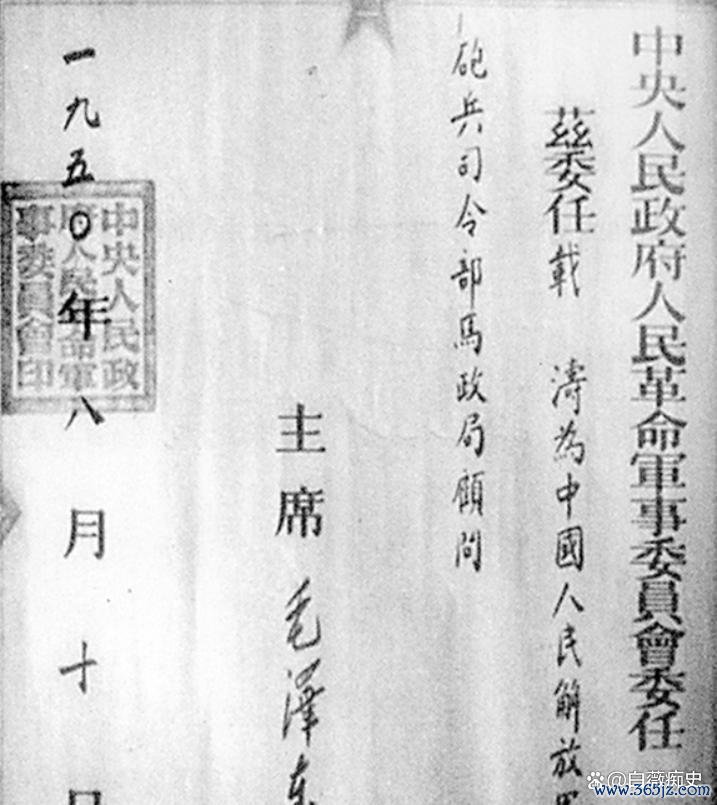 中央人民政府人民革命軍事委員會委任
茲委任載 濤為中國人民解放軍
砲兵司令部馬政局顧問
主席 毛澤东
一九五〇年八月十日
中央人民政
府人民革命軍
事委員會印
@白薇痴史
www.365jz.com